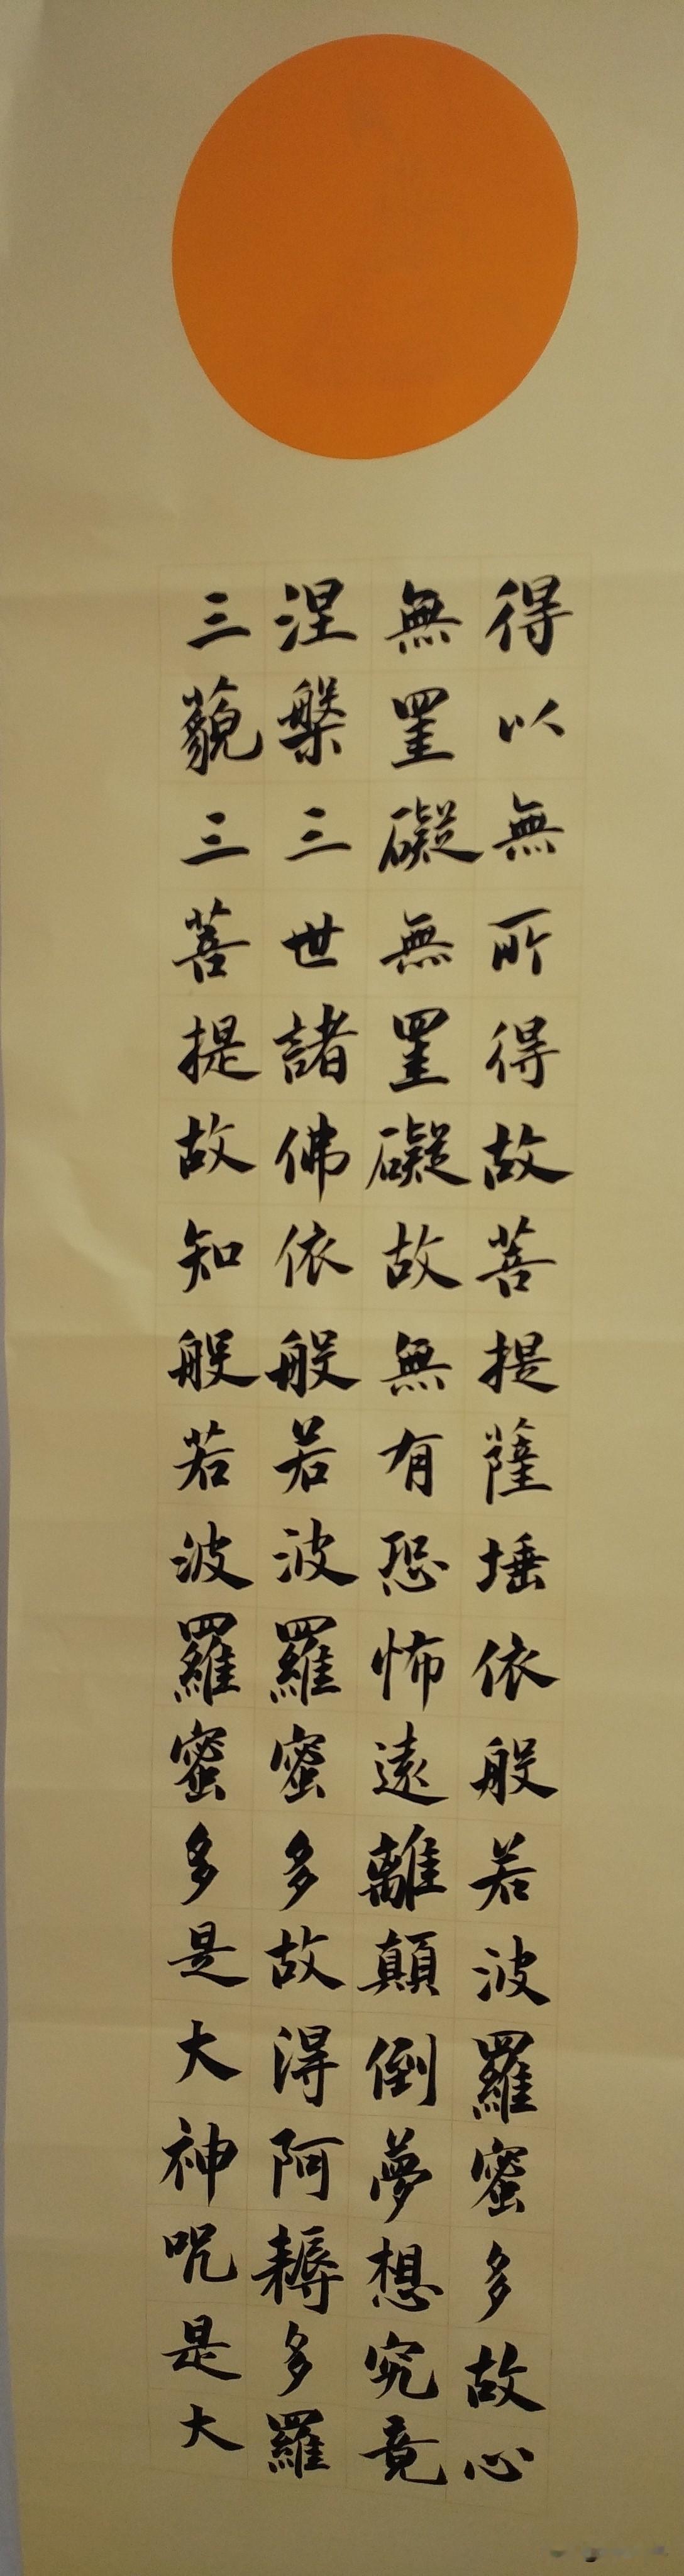 得以無所得故菩提薩埵依般若波羅蜜多故心
無罣礙無罣礙故無有恐怖遠離顛倒夢想究竟
涅槃三世諸佛依般若波羅蜜多故得阿耨多羅
三藐三菩提故知般若波羅蜜多是大神咒是大